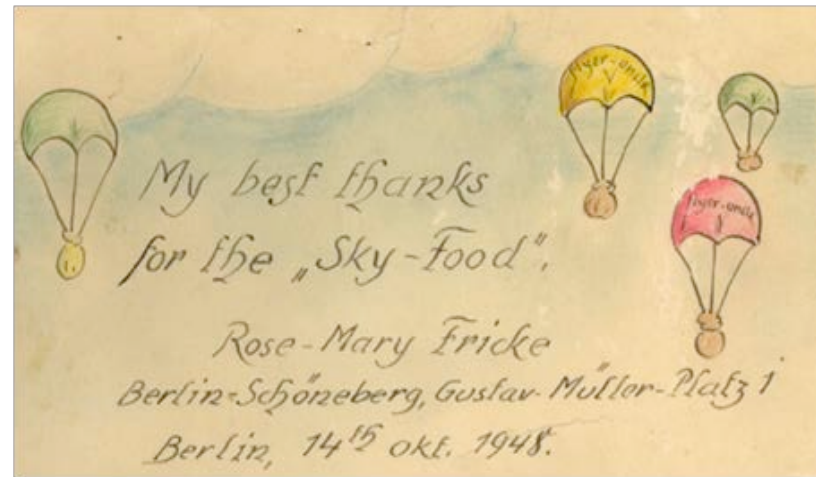 flyer-uncle
flyer-uncle
My best thanks
for the „Sky-Food".
Rose-Mary Fricke
Berlin-Schöneberg, Gustav-Müller-Platz 1
Berlin, 14th okt. 1948.